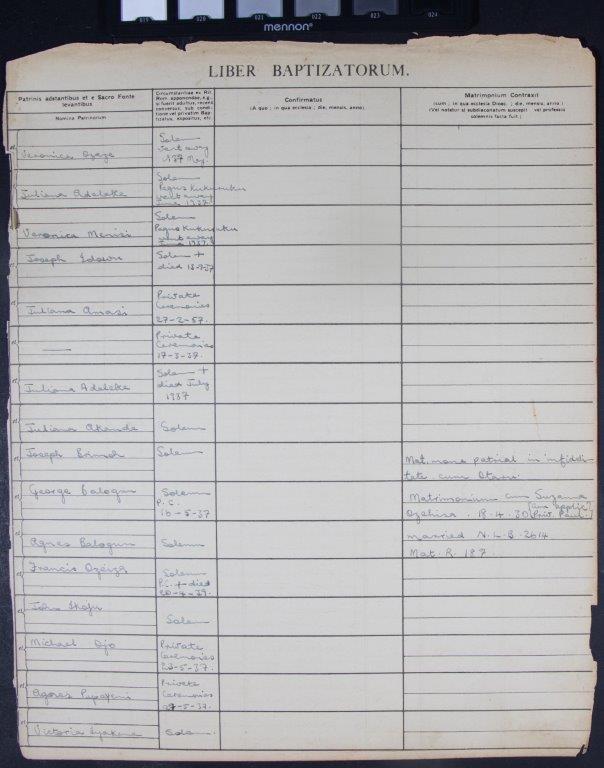 019 020 021 022 023 024
mennon
LIBER BAPTIZATORUM.
Patrinis adstantibus et e Sacro Fonte
levantibus
Nomina Patrinorum
Circumstantiae ex Rit.
Rom. apponendae, e.g.
si fuerit adultus, recens
conversus, sub condi-
tione vel privatim Bap-
tizatus, expositus, etc.
Confirmatus
(A quo ; in qua ecclesia ; die, mensis, anno)
Matrimonium Contraxit
(cum ; in qua ecclesia Dioec. ; die, mensis, anno)
(Vel notatur si subdiaconatum suscepit vel professio
solemnis facta fuit.)
Veronica
Solem
went away
1937 May.
Juliana Adeleke
Solem
Pagus Kukuruku
went away
June 1937.
Veronica
Solem
Pagus Kukuruku
went away
June 1937.
Joseph Idowu
Solem +
died 18-9-37
Juliana
Private
Ceremonies
27-2-37.
Private
Ceremonies
17-3-37.
Juliana Adeleke
Solem +
died July
1937
Juliana Akande
Solem
Joseph
Solem
Mat. more patrial in infideli-
tate cum
George Balogun
Solem
P.C.
16-5-37
Matrimonium cum Suzana
Agnes Balogun
Solem
married N.L.B. 2614
Mat. R. 187.
Francis
Solem
P.C. + died
20-4-39.
John
Solem
Michael Ojo
Private
Ceremonies
23-5-37.
Agnes
Private
Ceremonies
Victoria
Solem.